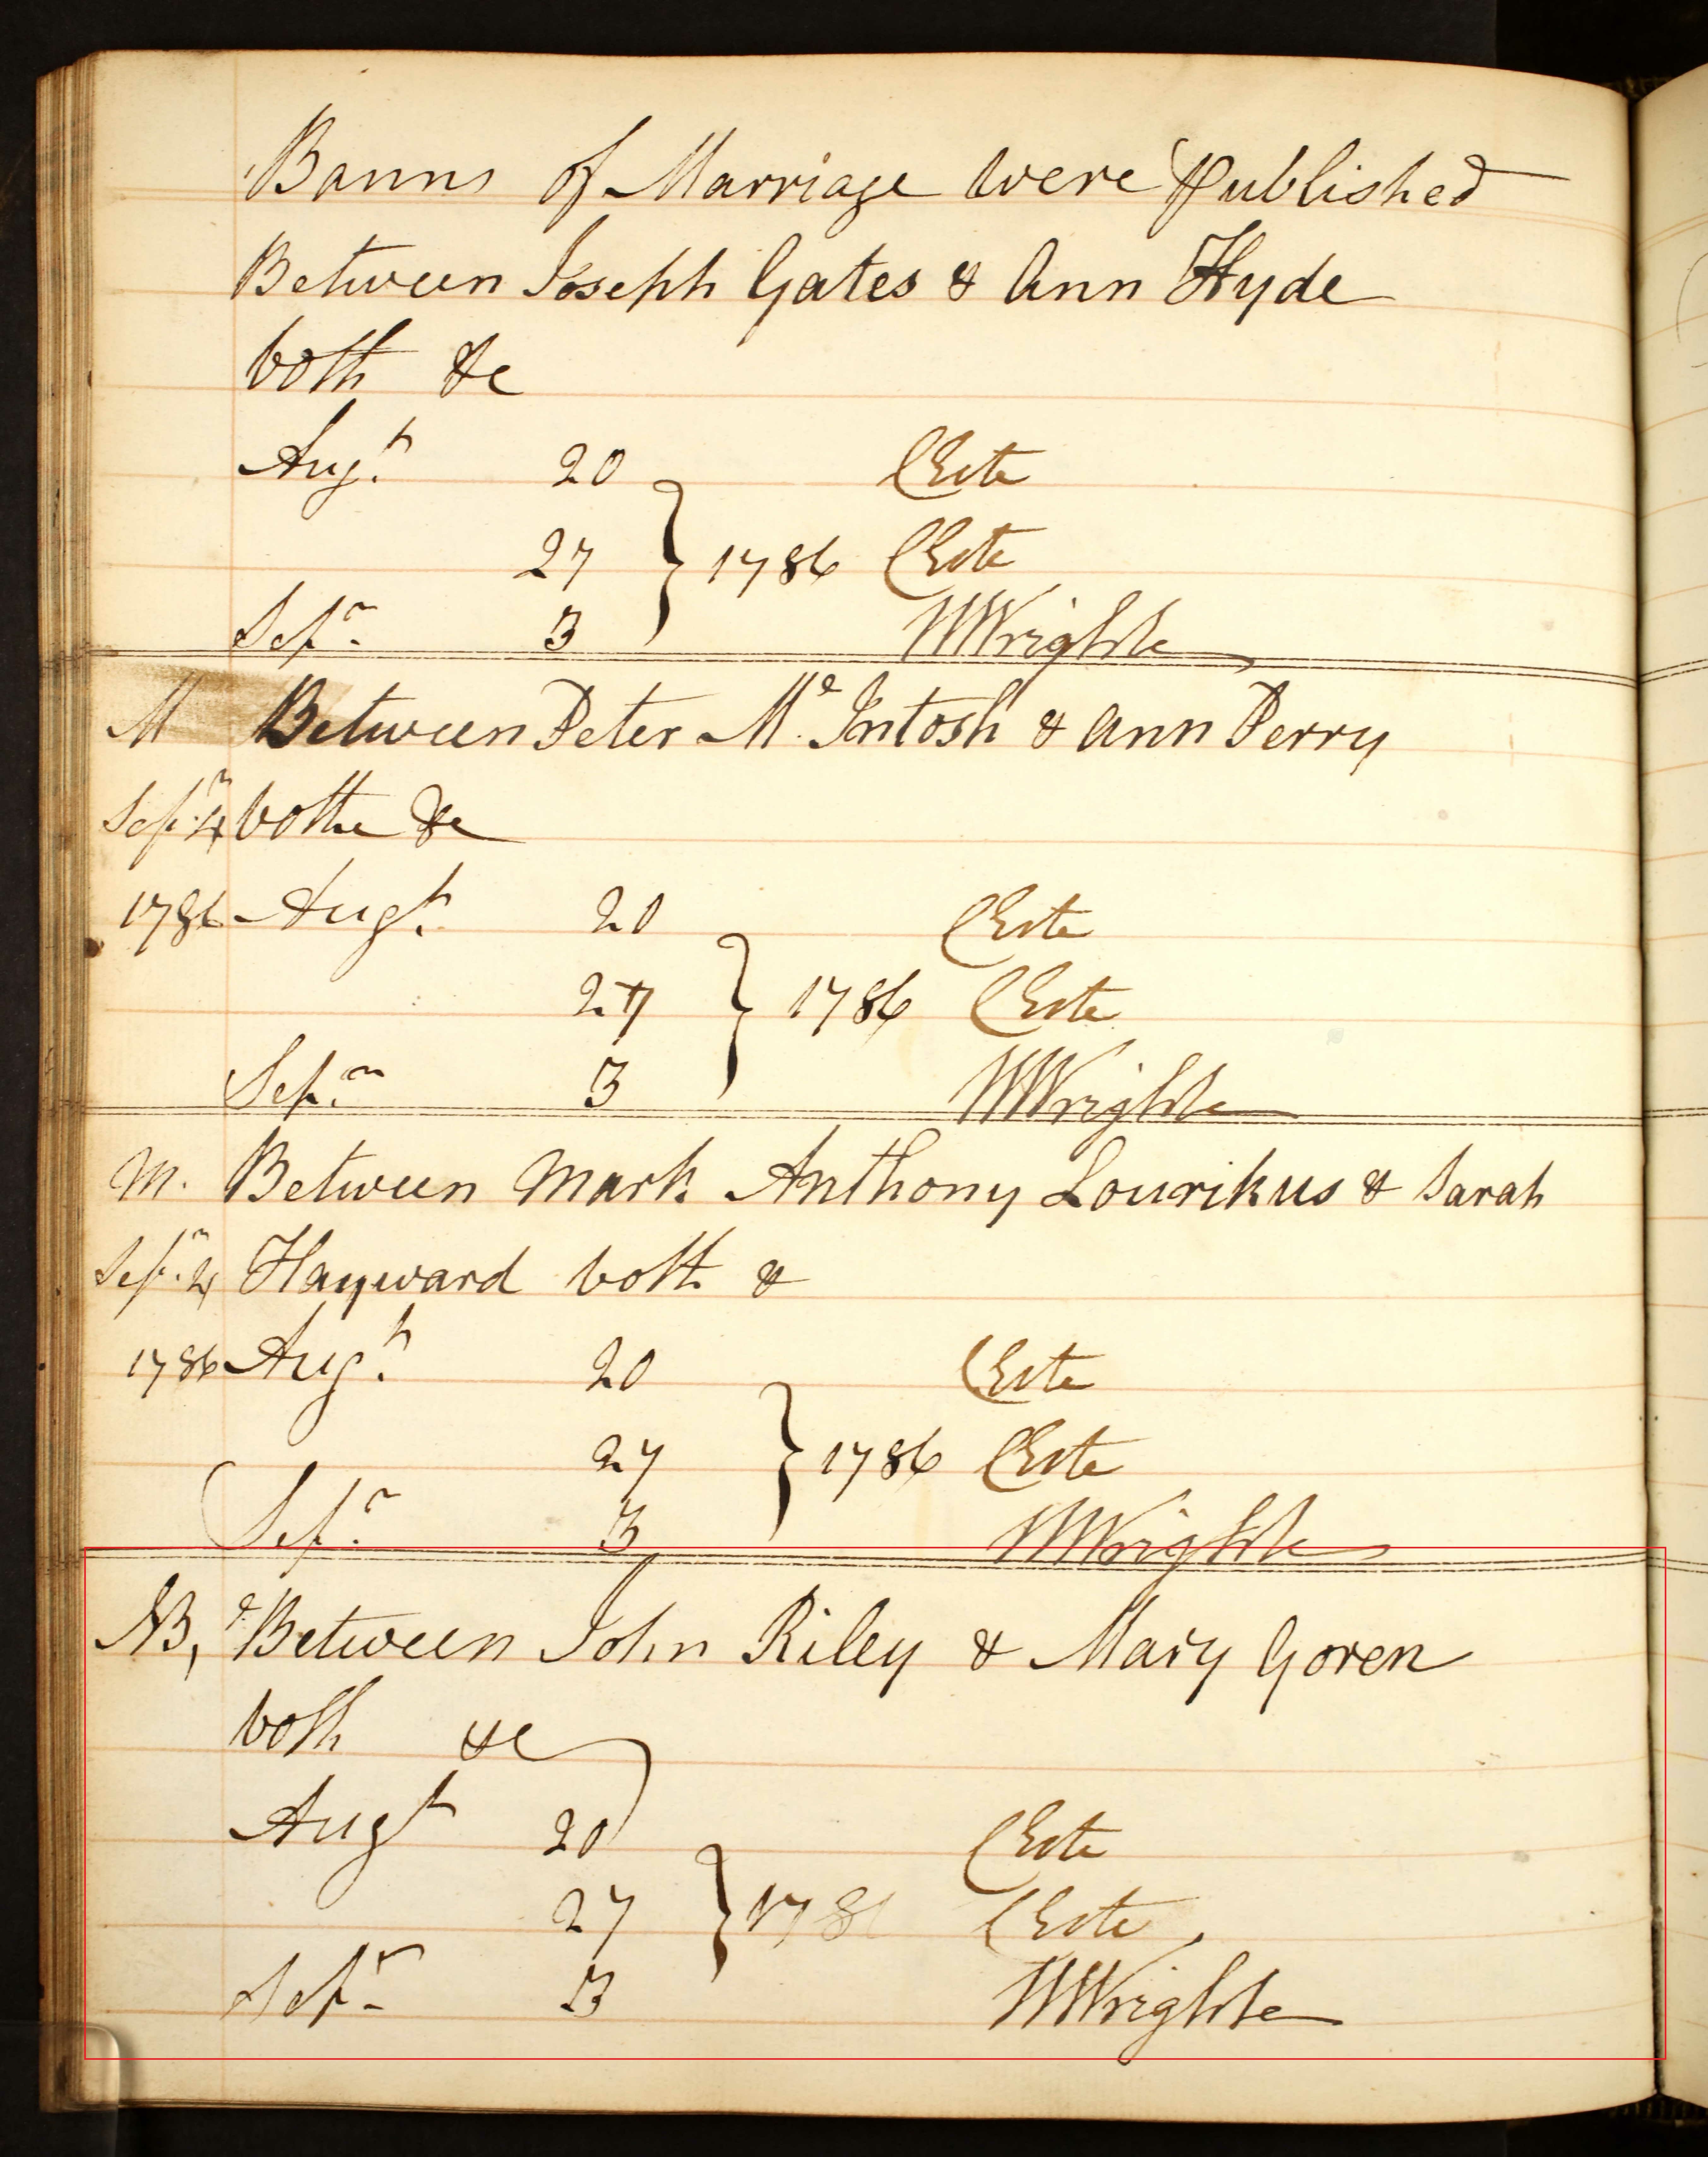 Banns of Marriage were Published
Between Joseph Gates & Ann Hyde
both &c
Augt. 20 CEste
27 } 1786 CEste
Sepr. 3 WWrighte
M Between Peter Mc. Intosh & Ann Perry
Sepr. 4 both &c
1786 Augt. 20 CEste
27 } 1786 CEste
Sepr. 3 WWrighte
M. Between Mark Anthony Lourikus & Sarah
Sepr. 4 Hayward both &
1786 Augt. 20 CEste
27 } 1786 CEste
Sepr. 3 WWrighte
Between John Riley & Mary Goren
both &c
Augt 20 CEste
27 } 1786 CEste
Sepr. 3 WWrighte